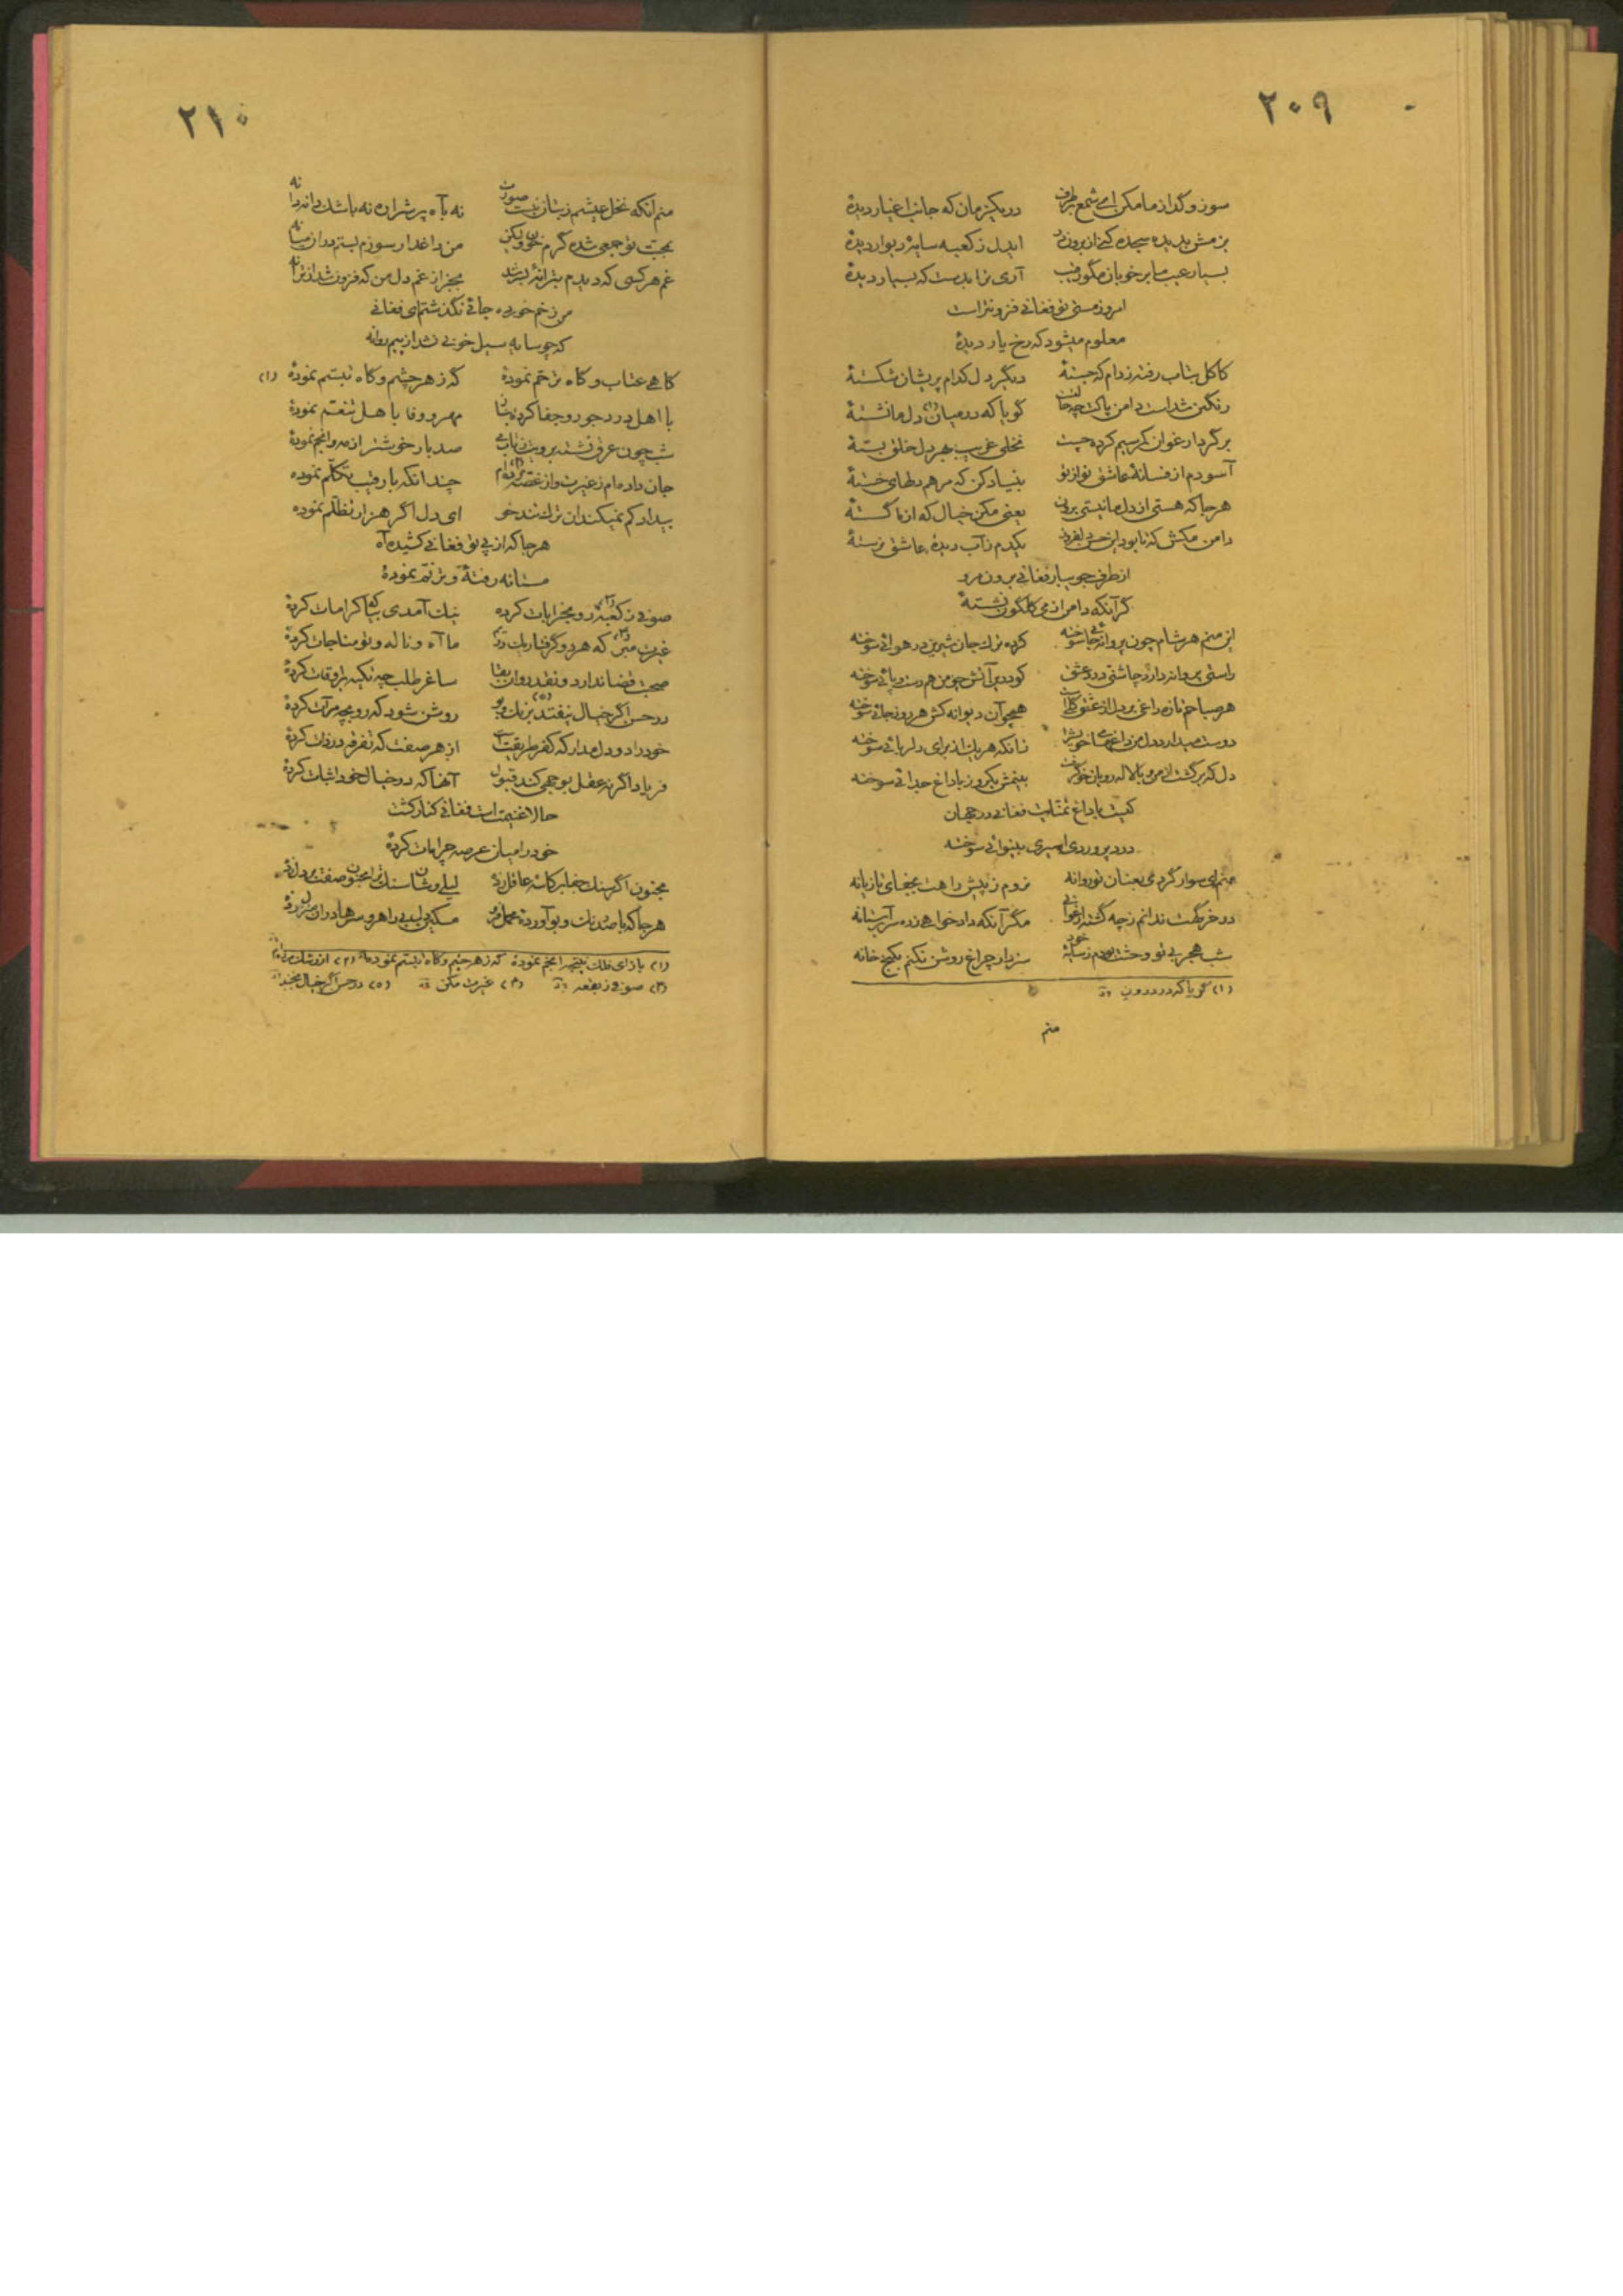 ۲۰۹
سوز و گداز ما مکن ای شمع برطرف در یکزمان که جانب اغیار دیدهٔ
بزمش ندیده سجده کنی از برون در ایدل ز کعبه سایهٔ دیوار دیدهٔ
بسیار عیب ما بر خوبان مگو رقیب آری ترا بدست که بسیار دیدهٔ
امروز مستی تو فغانی فزونتر است
معلوم میشود که رخ یار دیدهٔ
کاکل بتاب رفته ز دام که جستهٔ دیگر دل کدام پریشان شکستهٔ
رنگین شداست دامن پاکت چه حالتست گویا که در میان (۱) دل ما نشستهٔ
بر گرد ارغوان کمر سیم کرده چست نخلی غریب بهر دل خلق بستهٔ
آسودم از فسانهٔ عاشق نواز تو بنیاد کن که مرهم دلهای خستهٔ
هر جا که هستی از دل ما نیستی برون یعنی مکن خیال که از ما گسستهٔ
دامن مکش که تا بود این حسن دلفروز یکدم ز آب دیدهٔ عاشق نرستهٔ
از طرف جویبار فغانی برون مرو
گر آنکه دامن از می گلگون نشستهٔ
این منم هر شام چون پروانه جائی سوخته کرده ترک جان شیرین در هوائی سوخته
راستی پروانه دارد چاشنی درد عشق کو درین آتش چو من هم دست و پائی سوخته
هر صباحم تازه داغی بر دل از عشق گلیست همچو آن دیوانه کش هر روز جائی سوخته
دوست میدارد دل من داغهای خویش را زانکه هر یک از برای دلربائی سوخته
دل که بر گشت از من و با لاله رویان خو گرفت بینمش یکروز با داغ جدائی سوخته
کیست با داغ تمنایت فغانی در جهان
درد پروردی اسیری بینوائی سوخته
منم ای سوار گردی بعنان تو روانه نروم ز پیش راهت بجفای تازیانه
در خرگهت ندانم ز چه گشته ارغوانی مگر آنکه دادخواهی زده سر بر آستانه
شب هجر بی تو وحشت بودم ز سایهٔ خود سزد ار چراغ روشن نکنم بکنج خانه
(۱) گویا که در درون
منم
۲۱۰
منم آنکه نخل عیشم ز بتان نبست صورت نه بآه پر شراره نه باشک دانه دانه
بجهت تو جمعی شده گرم خون ولیکن من داغدار سوزم بستم در آن میانه
غم هر کسی که دیدم بترانهٔ بدر شد بجز از غم دل من که فزون شد از ترانه
من زخم خورده جائی نگذشتم ای فغانی
که چو سایه سیل خونی نشد از پیم روانه
گاهی عتاب و گاه ترحم نمودهٔ گه زهر چشم و گاه تبسم نمودهٔ (۱)
با اهل درد جور و جفا کرده بتان مهر و وفا باهل تنعم نمودهٔ
شب چون عرق نشسته برویت ز تاب می صد بار خوشتر از مه و انجم نمودهٔ
جان داده‌ام ز غیرت و از غصه مرده‌ام (۲) چندانکه با رقیب تکلم نموده
بیداد کم نمیکند آن ترک تند خو ای دل اگر هزار تظلم نموده
هر جا که از پی تو فغانی کشیده آه
مستانه رفتهٔ و ترنم نمودهٔ
صوفی ز کعبه (۳) رو بخرابات کرده نیک آمدی بیا که کرامات کردهٔ
غیرت مبر (۴) که هر دو گرفتار یک دریم ما آه و ناله و تو مناجات کردهٔ
صحبت قضا ندارد و نقد روان بقا ساغر طلب چه تکیه بر اوقات کردهٔ
در حسن اگر خیال نیفتد (۵) بزنک و بو روشن شود که رو بچه مرآت کردهٔ
خود را دو دل مدار که کفر طریقتست از هر صفت که تفرقه در ذات کردهٔ
فریاد اگر نه عقل بوجهی کند قبول آنها که در خیال خود اثبات کردهٔ
حالا غنیمت است فغانی کنار کشت
خود را میان عرصه چرا مات کردهٔ
مجنون اگر سنک جفا بر کاسهٔ عاقل زدهٔ لیلی وشان سنک ترا مجنون صفت بر دل زده
هر جا که با صد رنک و بو آوردهٔ محمل برون مسکین دلی بر راهرو سرها در آن منزل زدهٔ
(۱) گه زهر چشم و گاه تبسم نموده
(۳) صوفی ز بقعه (۴) غیرت مکن (۵) در حسن اگر خیال